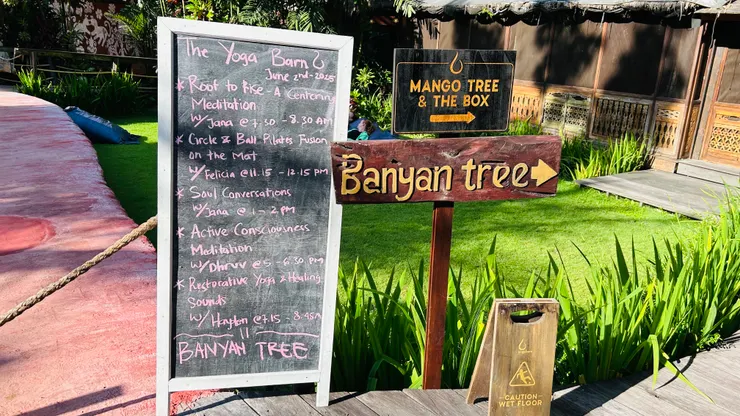 The Yoga Barn
June 2nd-2025
* Root to Rise - A Centering
Meditation
w/Jana @ 7.30 - 8.30 AM
* Circle & Ball Pilates Fusion
on the Mat
w/Felicia @ 11.15 - 12.15 PM
* Soul Conversations
w/Jana @ 1 - 2 PM
* Active Consciousness
Meditation
w/Dhruv @ 5 - 6.30 PM
* Restorative Yoga & Healing
Sounds
w/ @ 7.15 - 8.45
BANYAN TREE
MANGO TREE
& THE BOX
Banyan tree
CAUTION
WET FLOOR